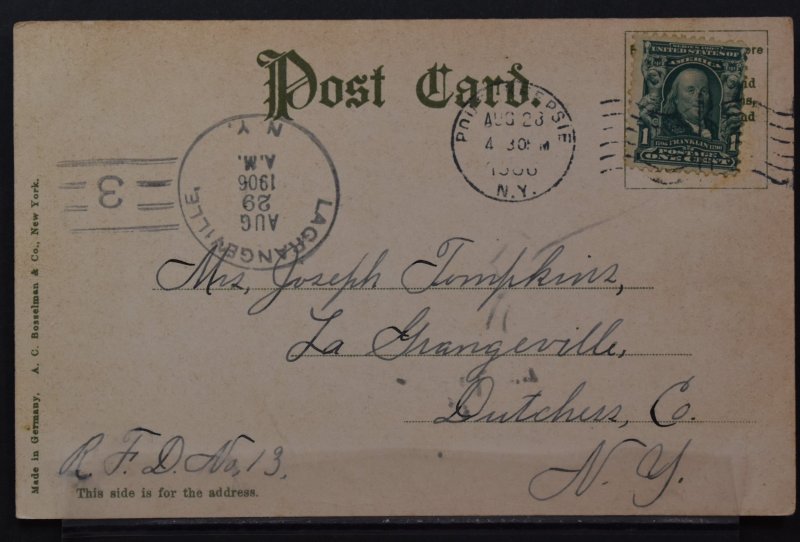 Post Card.
SERIES 1902
UNITED STATES OF
AMERICA
1 FRANKLIN 1
POSTAGE
ONE CENT
AUG 28
4 30 PM
1906
N.Y.
LAGRANGEVILLE,
N.Y.
AUG
29
A.M.
1906
3
Mrs, Joseph Tompkins,
La Grangeville,
Dutchess, Co.
N. Y.
R. F. D. No, 13,
This side is for the address.
Made in Germany, A. C. Bosselman & Co., New York.